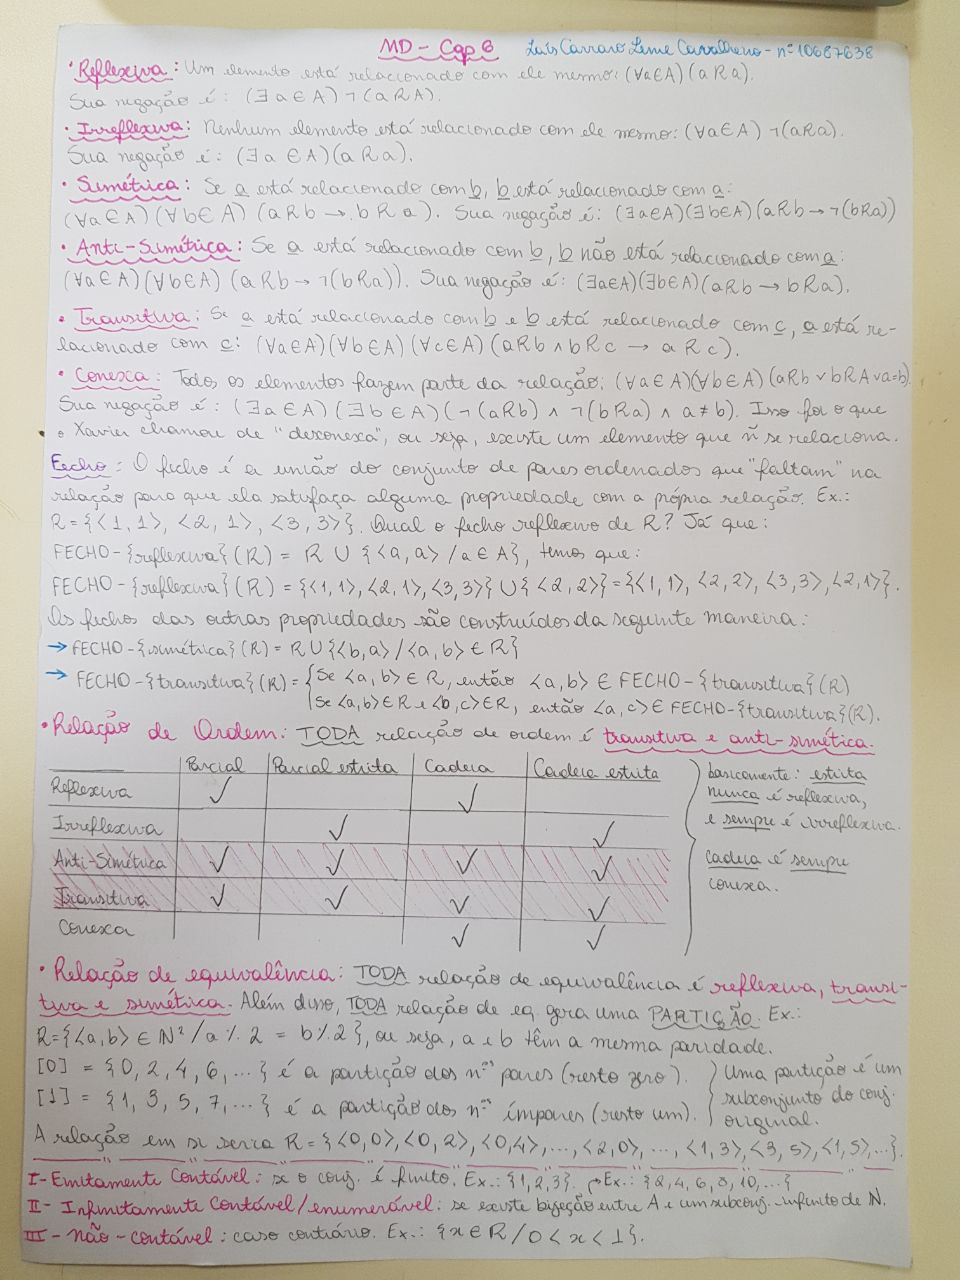 MD - Cap 6 Luís Carraro Leme Carvalheno - nº 10687638
• Reflexiva: Um elemento está relacionado com ele mesmo: (∀a∈A)(aRa).
Sua negação é: (∃a∈A)¬(aRA).
• Irreflexiva: Nenhum elemento está relacionado com ele mesmo: (∀a∈A)¬(aRa).
Sua negação é: (∃a∈A)(aRa).
• Simétrica: Se a está relacionado com b, b está relacionado com a:
(∀a∈A)(∀b∈A)(aRb → bRa). Sua negação é: (∃a∈A)(∃b∈A)(aRb → ¬(bRa))
• Anti-Simétrica: Se a está relacionado com b, b não está relacionado com a:
(∀a∈A)(∀b∈A)(aRb → ¬(bRa)). Sua negação é: (∃a∈A)(∃b∈A)(aRb → bRa).
• Transitiva: Se a está relacionado com b e b está relacionado com c, a está re-
lacionado com c: (∀a∈A)(∀b∈A)(∀c∈A)(aRb ∧ bRc → aRc).
• Conexa: Todos os elementos fazem parte da relação: (∀a∈A)(∀b∈A)(aRb ∨ bRA ∨ a=b).
Sua negação é: (∃a∈A)(∃b∈A)(¬(aRb) ∧ ¬(bRa) ∧ a≠b). Isso foi o que
o Xavier chamou de "desconexa", ou seja, existe um elemento que ñ se relaciona.
Fecho: O fecho é a união do conjunto de pares ordenados que "faltam" na
relação para que ela satisfaça alguma propriedade com a própria relação. Ex.:
R={<1,1>, <2,1>, <3,3>}. Qual o fecho reflexivo de R? Já que:
FECHO-{reflexiva}(R) = R ∪ {<a,a> / a∈A}, temos que:
FECHO-{reflexiva}(R) = {<1,1>,<2,1>,<3,3>} ∪ {<2,2>} = {<1,1>,<2,2>,<3,3>,<2,1>}.
Os fechos das outras propriedades são construídos da seguinte maneira:
→ FECHO-{simétrica}(R) = R ∪ {<b,a> / <a,b> ∈ R}
→ FECHO-{transitiva}(R) = {Se <a,b> ∈ R, então <a,b> ∈ FECHO-{transitiva}(R)
Se <a,b>∈R e <b,c>∈R, então <a,c>∈ FECHO-{transitiva}(R).
• Relação de Ordem: TODA relação de ordem é transitiva e anti-simética.
Parcial Parcial estrita Cadeia Cadeia estrita
Reflexiva ✓ ✓
Irreflexiva ✓ ✓
Anti-Simétrica ✓ ✓ ✓ ✓
Transitiva ✓ ✓ ✓ ✓
Conexa ✓ ✓
basicamente: estrita
nunca é reflexiva,
e sempre é irreflexiva.
cadeia é sempre
conexa.
• Relação de equivalência: TODA relação de equivalência é reflexiva, transi-
tiva e simética. Além disso, TODA relação de eq. gera uma PARTIÇÃO. Ex.:
R={<a,b> ∈ N² / a % 2 = b % 2}, ou seja, a e b têm a mesma paridade.
[0] = {0, 2, 4, 6, ...} é a partição dos nºs pares (resto zero).
[1] = {1, 3, 5, 7, ...} é a partição dos nºs ímpares (resto um).
Uma partição é um
subconjunto do conj.
original.
A relação em si seria R = {<0,0>,<0,2>,<0,4>,...,<2,0>,...,<1,3>,<3,5>,<1,5>,...}.
I- Finitamente Contável: se o conj. é finito. Ex.: {1,2,3}. Ex.: {2,4,6,8,10,...}
II- Infinitamente Contável/enumerável: se existe bijeção entre A e um subconj. infinito de N.
III- Não-contável: caso contrário. Ex.: {x∈R / 0<x<1}.